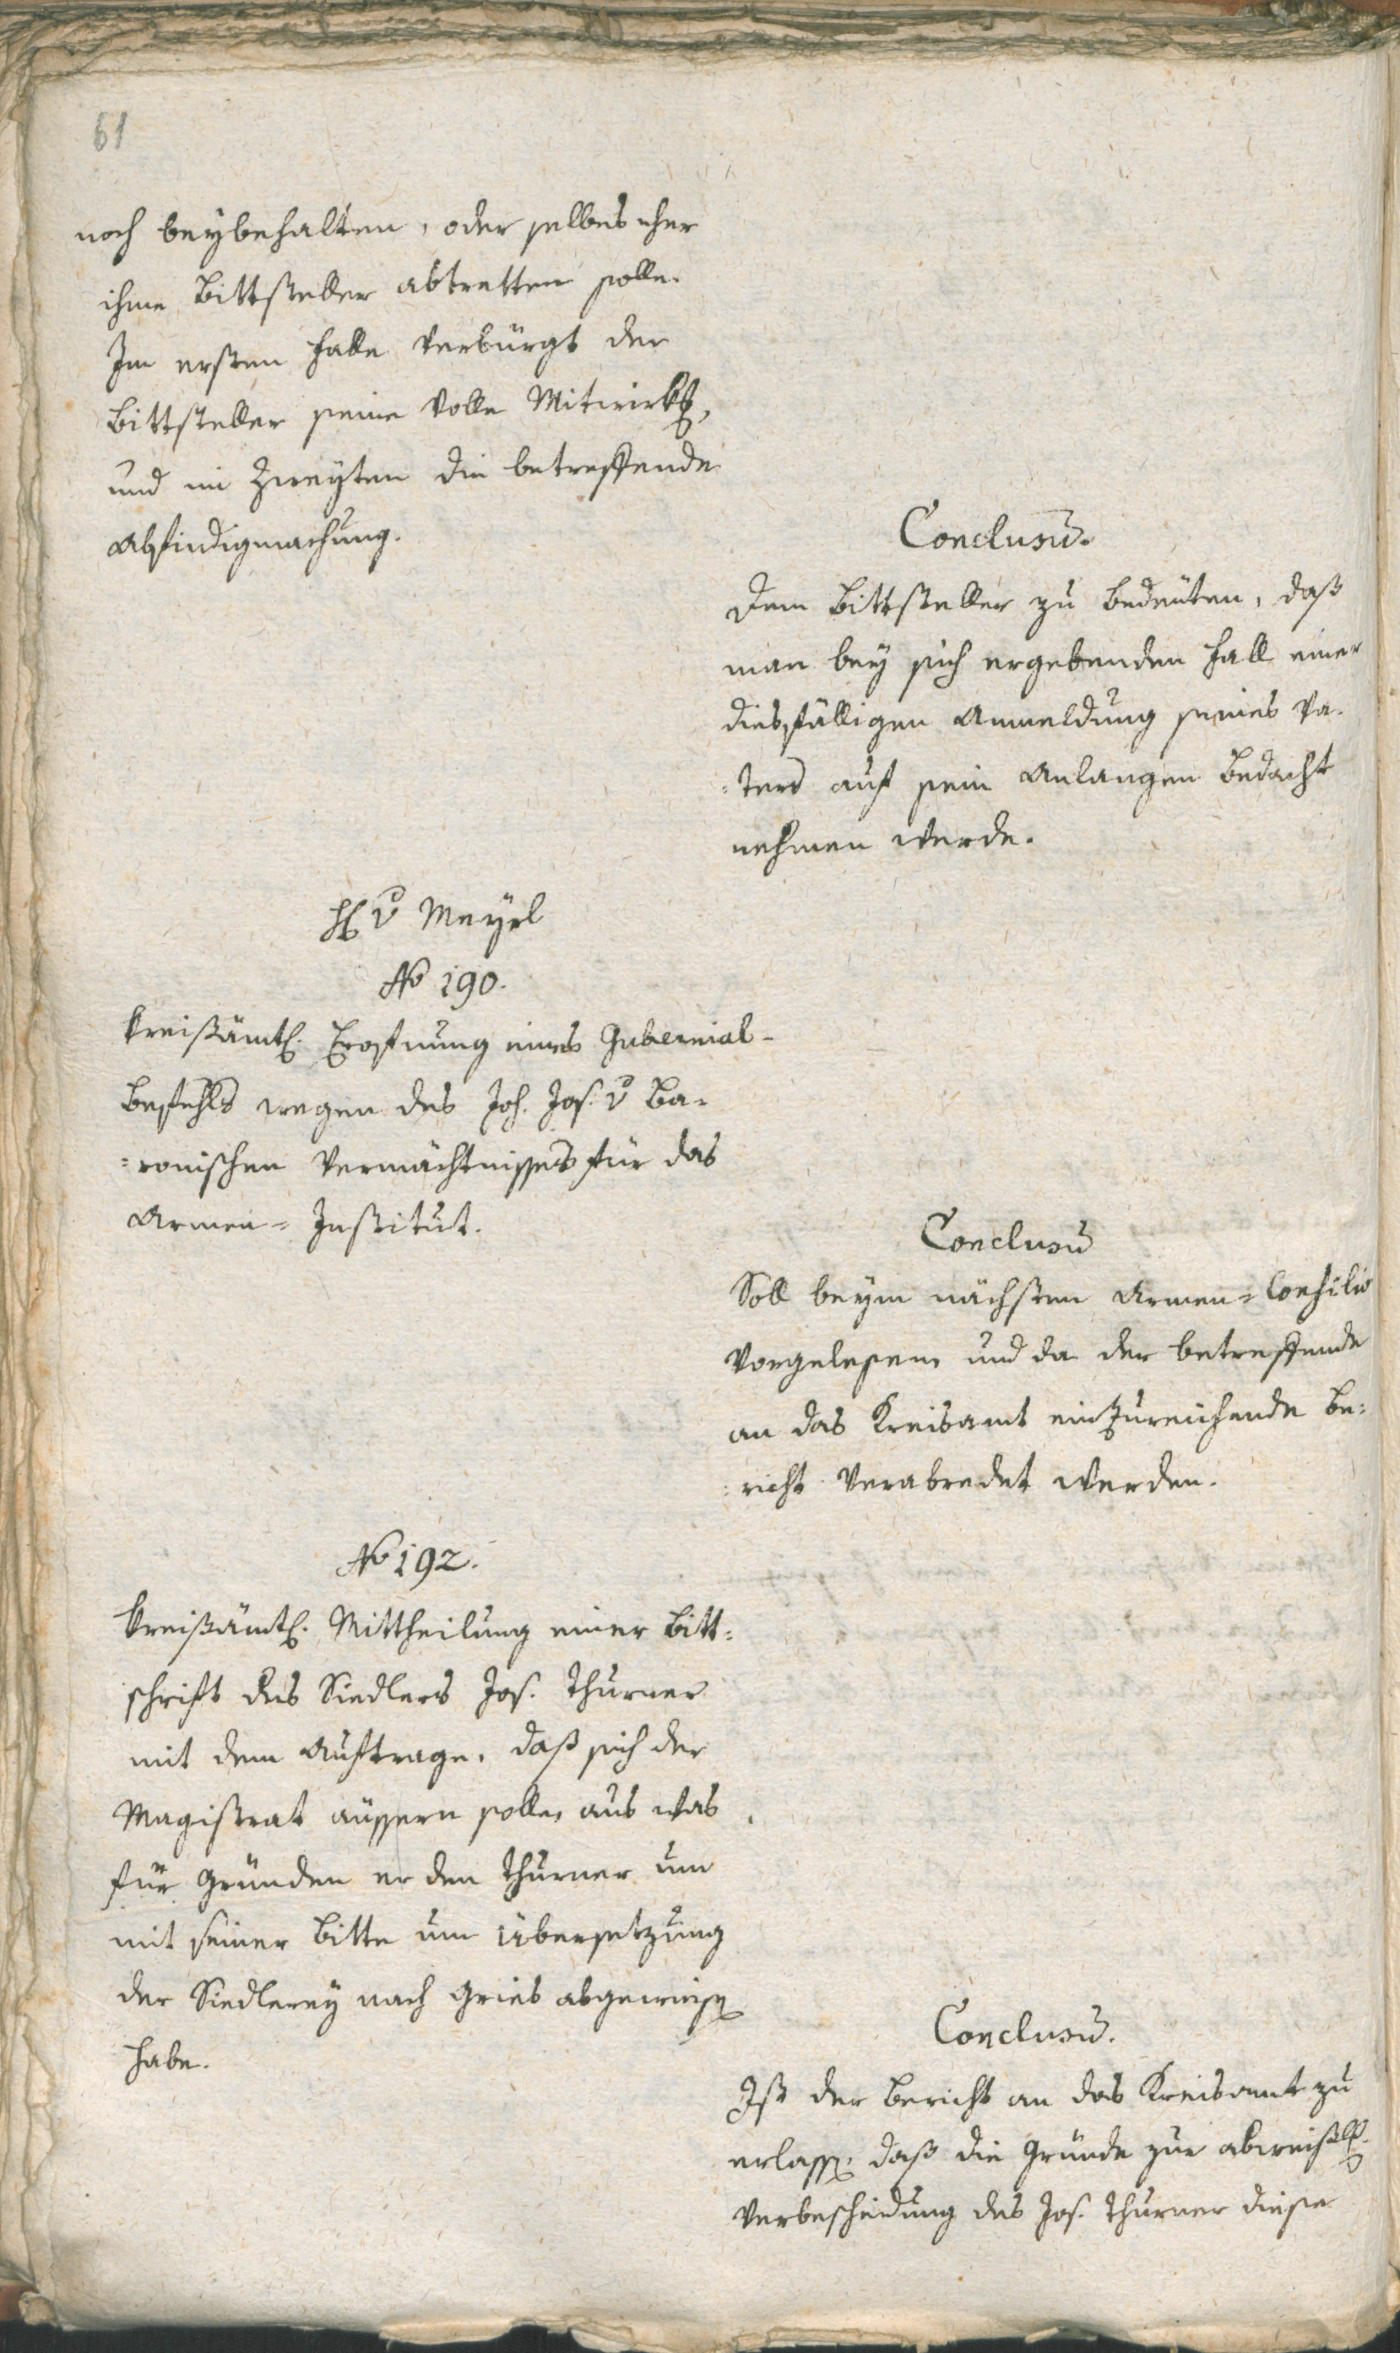 61
noch beybehalten, oder selbes eher
ihme Bittsteller abtretten solle.
Im ersten Falle verbürgt der
Bittsteller seine volle Mitwirkg,
und im Zweyten die betreffende
Abfindigmachung.
Conclusū.
Dem Bittsteller zu bedeuten, daß
man bey sich ergebenden Fall einer
diesfälligen Anmeldung seines Va-
=ters auf sein Anlangen Bedacht
nehmen werde.
H v Mayrl
No 190.
Kreißämtl. Erofnung eines Gubernial-
Befehls wegen des Joh. Jos. v Ba-
=ronischen Vermächtnisses für das
Armen= Institut.
Conclusū
Soll beym nächsten Armen=Consilio
vorgelesen, und da der betreffende
an das Kreisamt einzureichende Be=
=richt verabredet werden.
No 192.
Kreißämtl. Mittheilung einer Bitt=
schrift des Siedlers Jos. Thurner
mit dem Auftrage, daß sich der
Magistrat äussern solle, aus was
für Gründen er den Thurner um
mit seiner Bitte um Übersetzung
der Siedlerey nach Gries abgewiesen
habe.
Conclusū.
Ist der Bericht an das Kreisamt zu
erlassen, daß die Gründe zur
Verbescheidung des Jos. Thurner diese